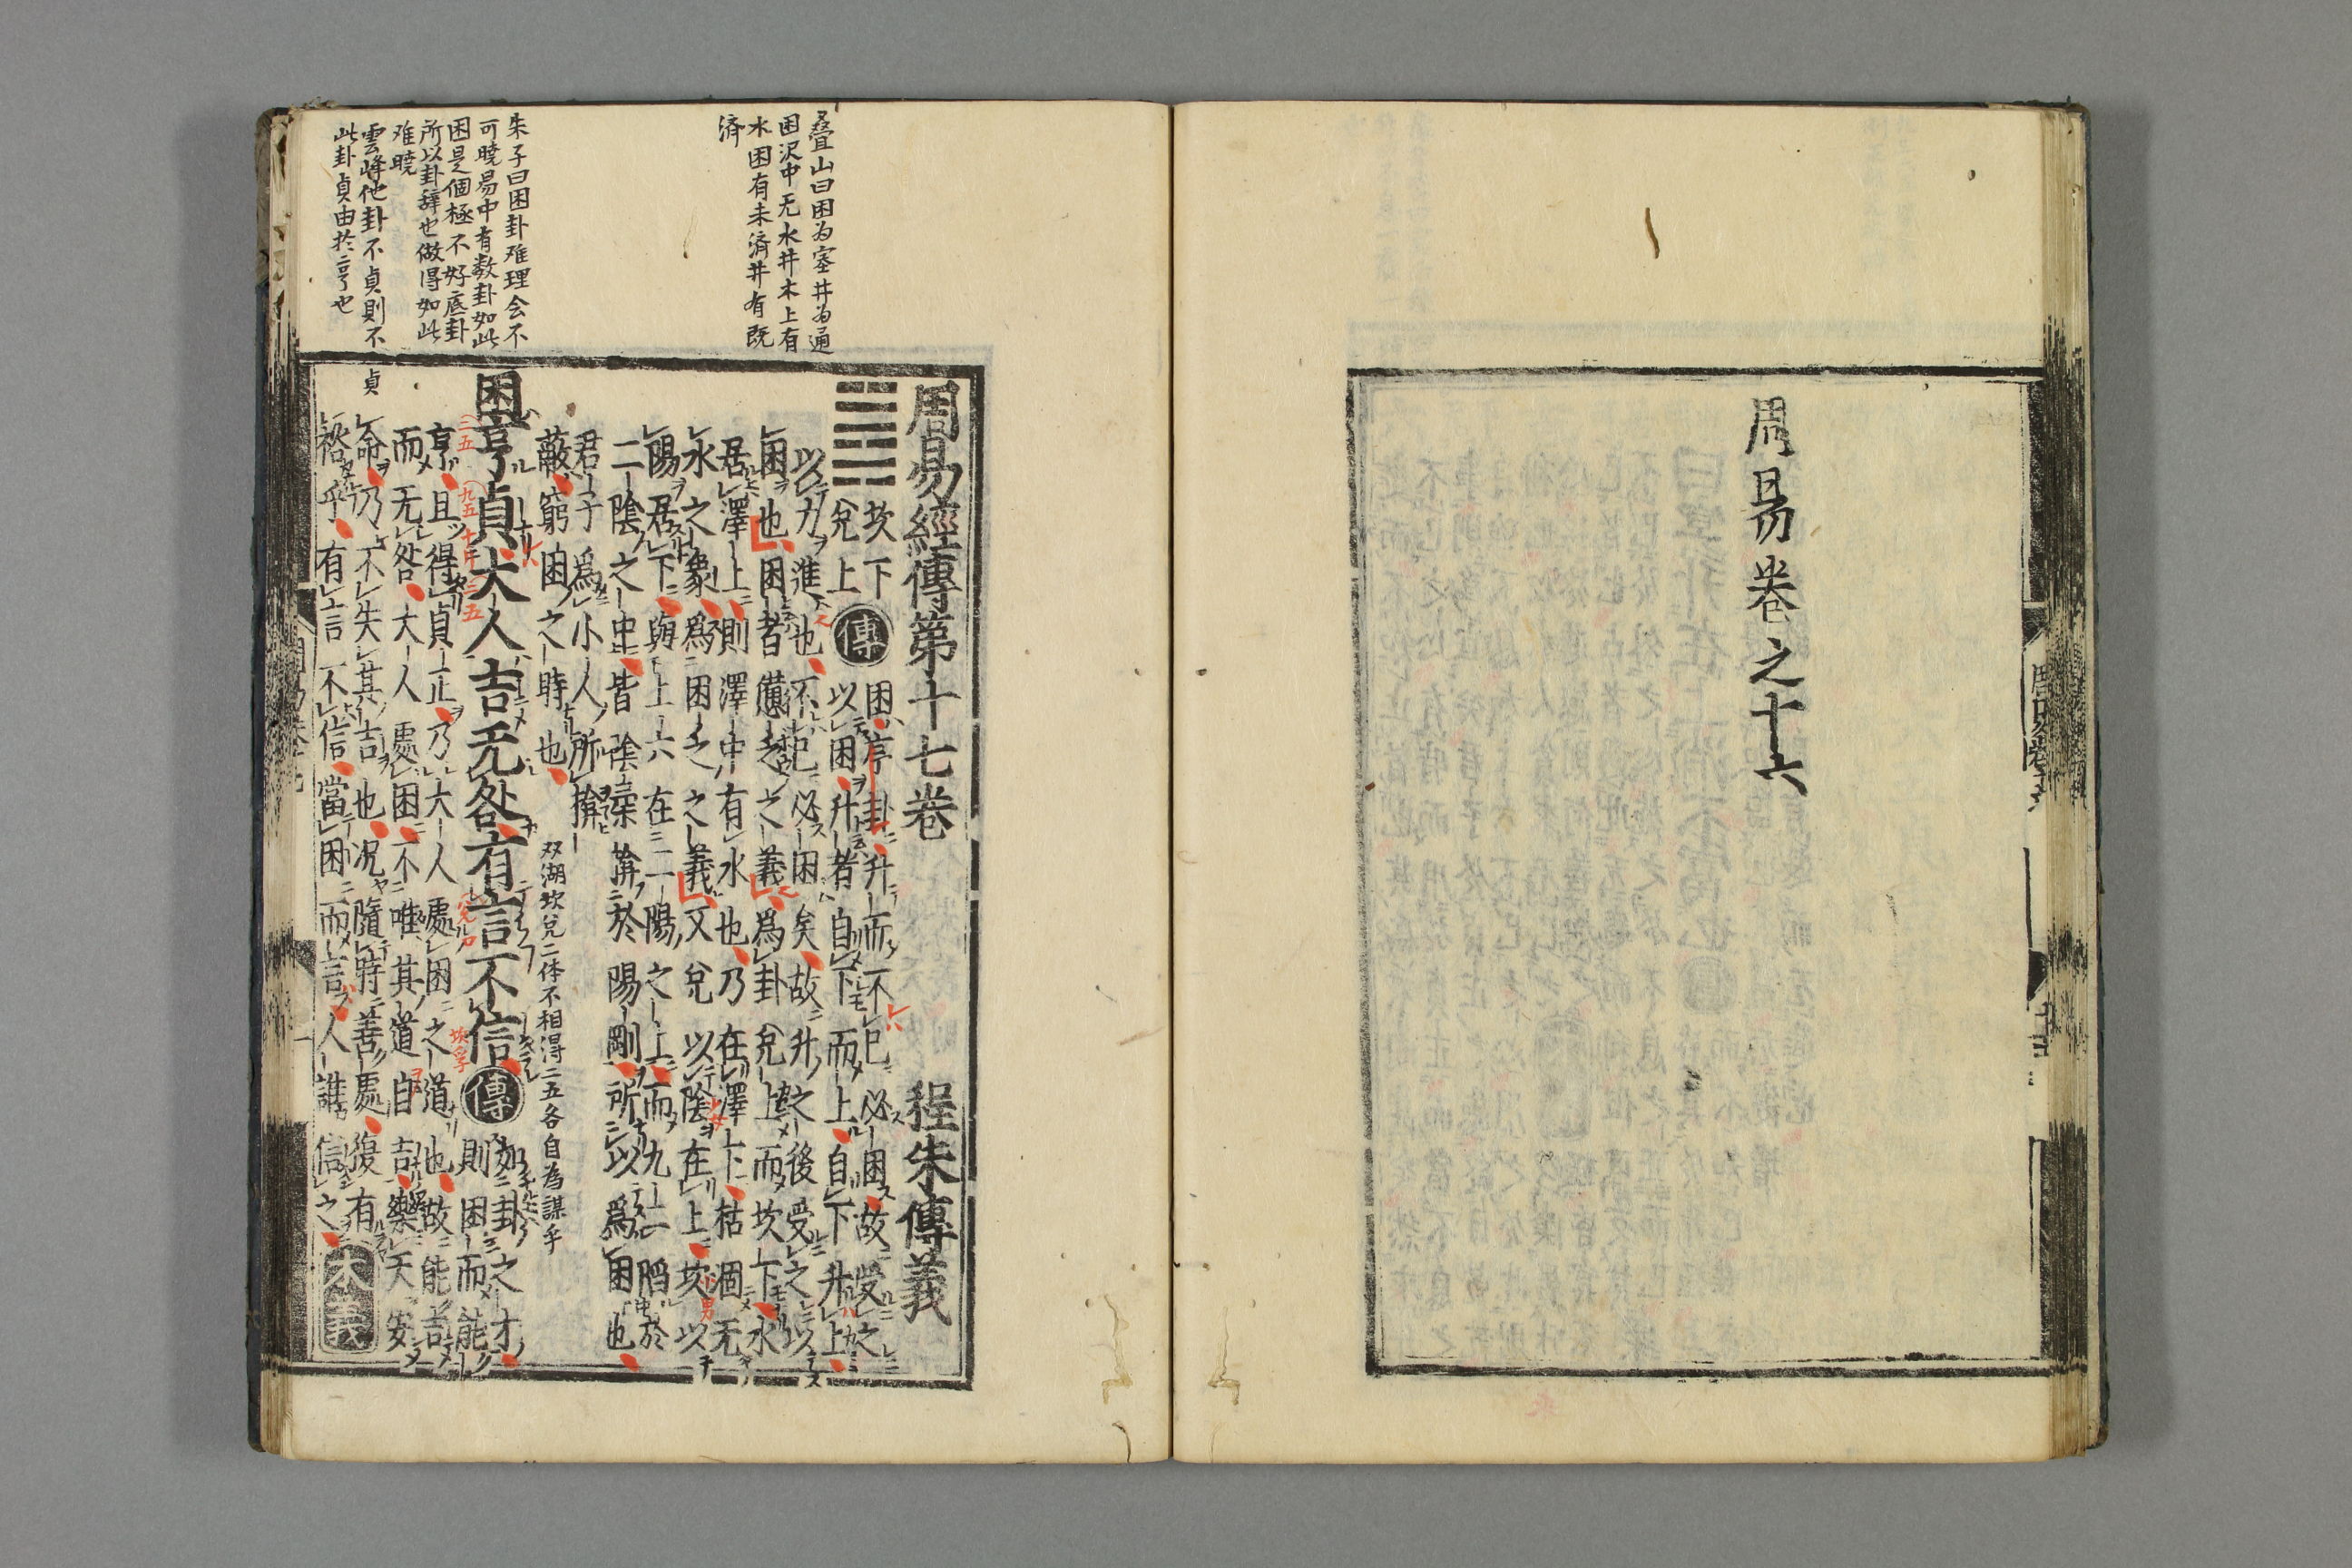 周易卷之十六
疊山曰困为塞井为通
困沢中无水井木上有
水困有未濟井有既
済
朱子曰困卦难理会不
可曉易中有数卦如此
困是個極不好底卦
所以卦辞也做得如此
难曉
雲峰他卦不貞則不
此卦貞由於亨也
貞
周易經傳第十七卷 程朱傳義
坎下
兌上
傳
困序卦升而不已必困故受之
以困升者自下而上自下升上
以力進也不已必困矣故升之後受之以
困也困者憊乏之義爲卦兌上而坎下水
居澤上則澤中有水也乃在澤下枯涸无
水之象爲困乏之義又兌以陰在上坎以
陽居下與上六在二陽之上而九二陷於
二陰之中皆陰柔揜於陽剛所以爲困也
君子爲小人所揜
蔽窮困之時也
双湖坎兌二体不相得二五各自為謀乎
困亨貞大人吉无咎有言不信
傳
如卦之才
則困而能
亨且得貞正乃大人處困之道也故能吉
而无咎大人處困不唯其道自吉樂天安
命乃不失其吉也况隨時善處復有
裕乎有言不信當困而言人誰信之
本義